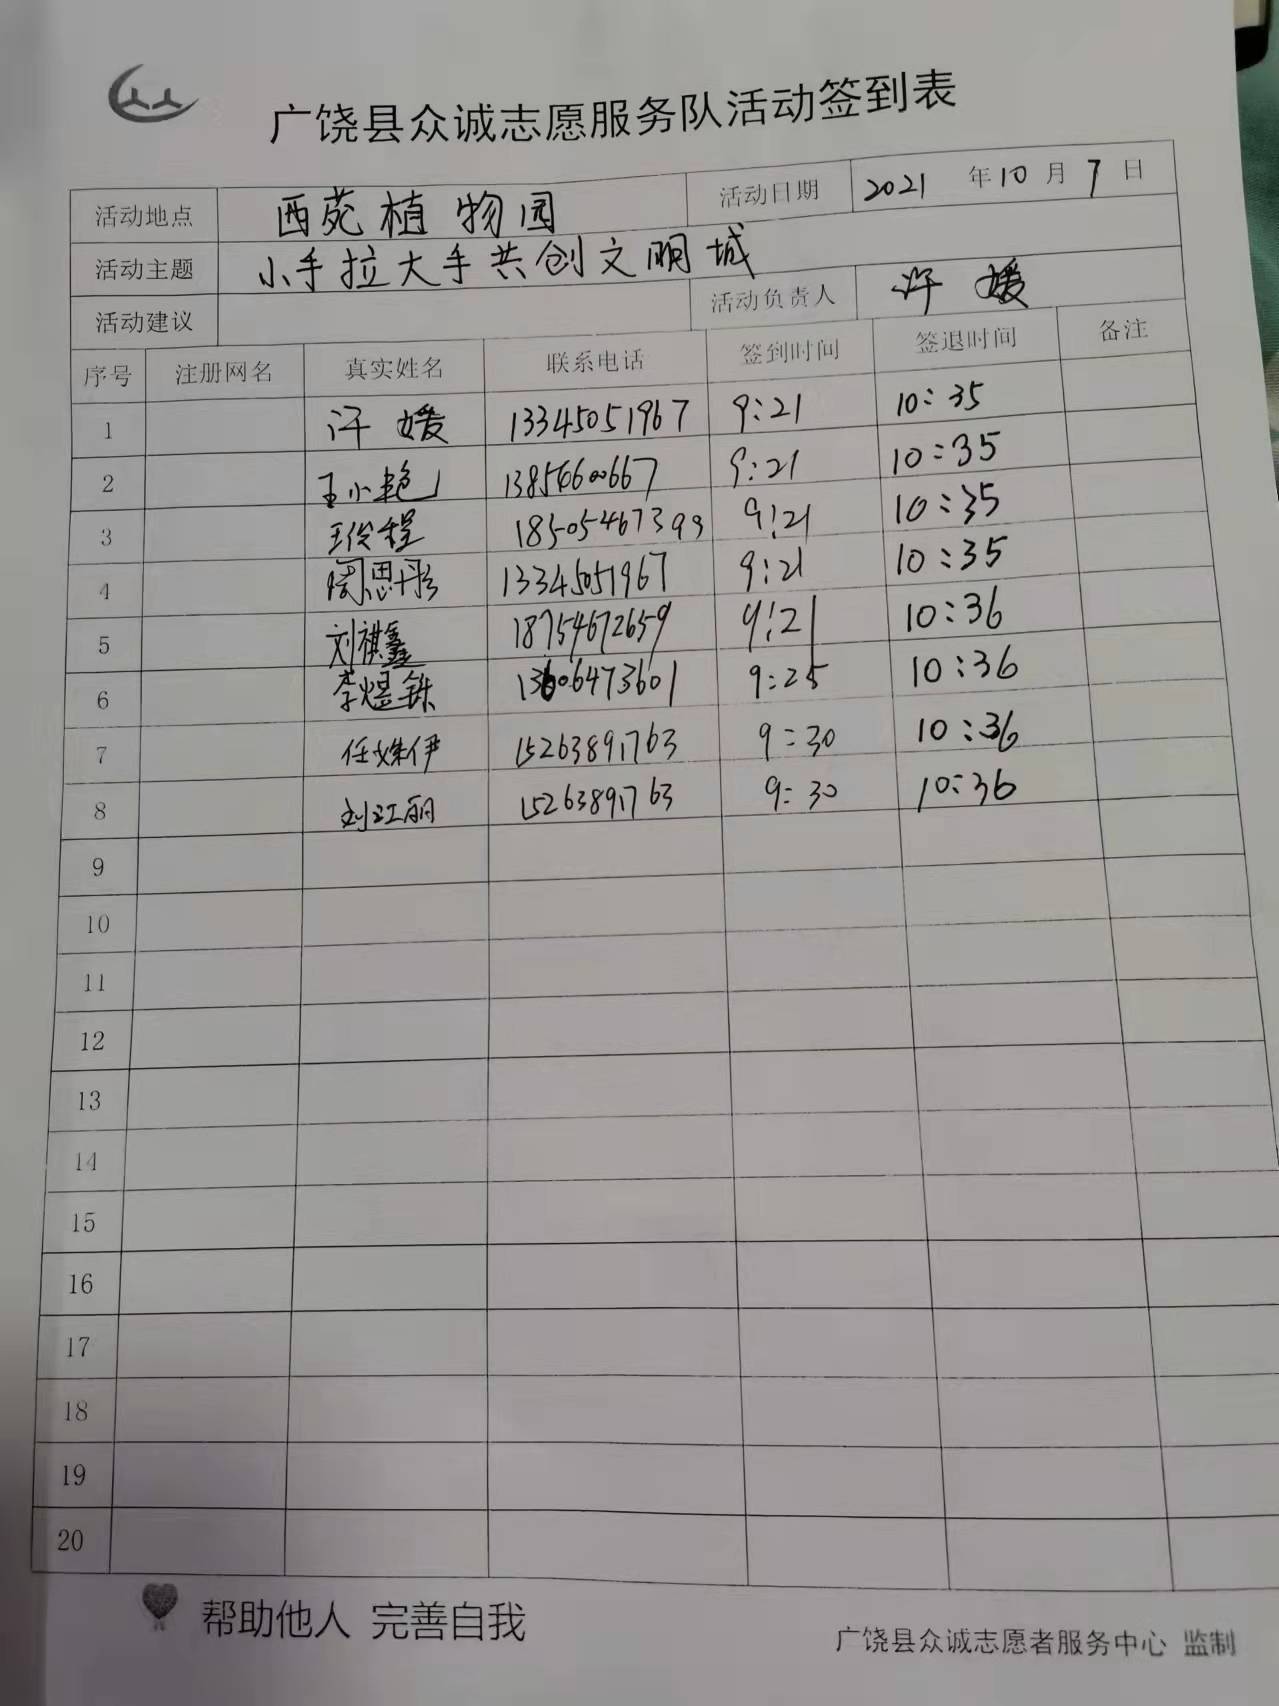 广饶县众诚志愿服务队活动签到表
活动地点 西苑植物园 活动日期 2021 年 10 月 7 日
活动主题 小手拉大手共创文明城
活动建议 活动负责人 许媛
序号 注册网名 真实姓名 联系电话 签到时间 签退时间 备注
1 许媛 13345051967 9:21 10:35
2 王小艳 13854660667 9:21 10:35
3 18505467399 9:21 10:35
4 周思彤 13345051967 9:21 10:35
5 刘祺鑫 18754672659 9:21 10:36
6 李煜铢 13606473601 9:25 10:36
7 任姝伊 15263891763 9:30 10:36
8 刘江丽 15263891763 9:30 10:36
9
10
11
12
13
14
15
16
17
18
19
20
帮助他人 完善自我
广饶县众诚志愿者服务中心 监制